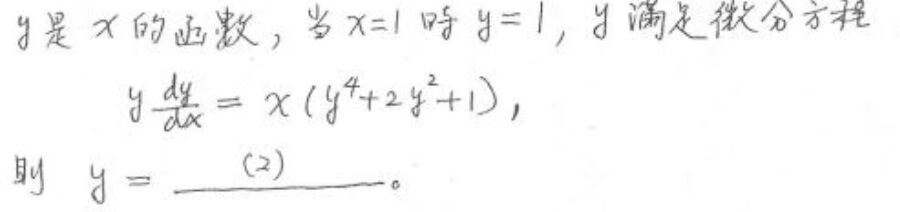 y是 x 的函數, 当 x=1 時 y=1, y 滿足微分方程
y dy/dx = x(y⁴+2y²+1),
則 y = (2)。